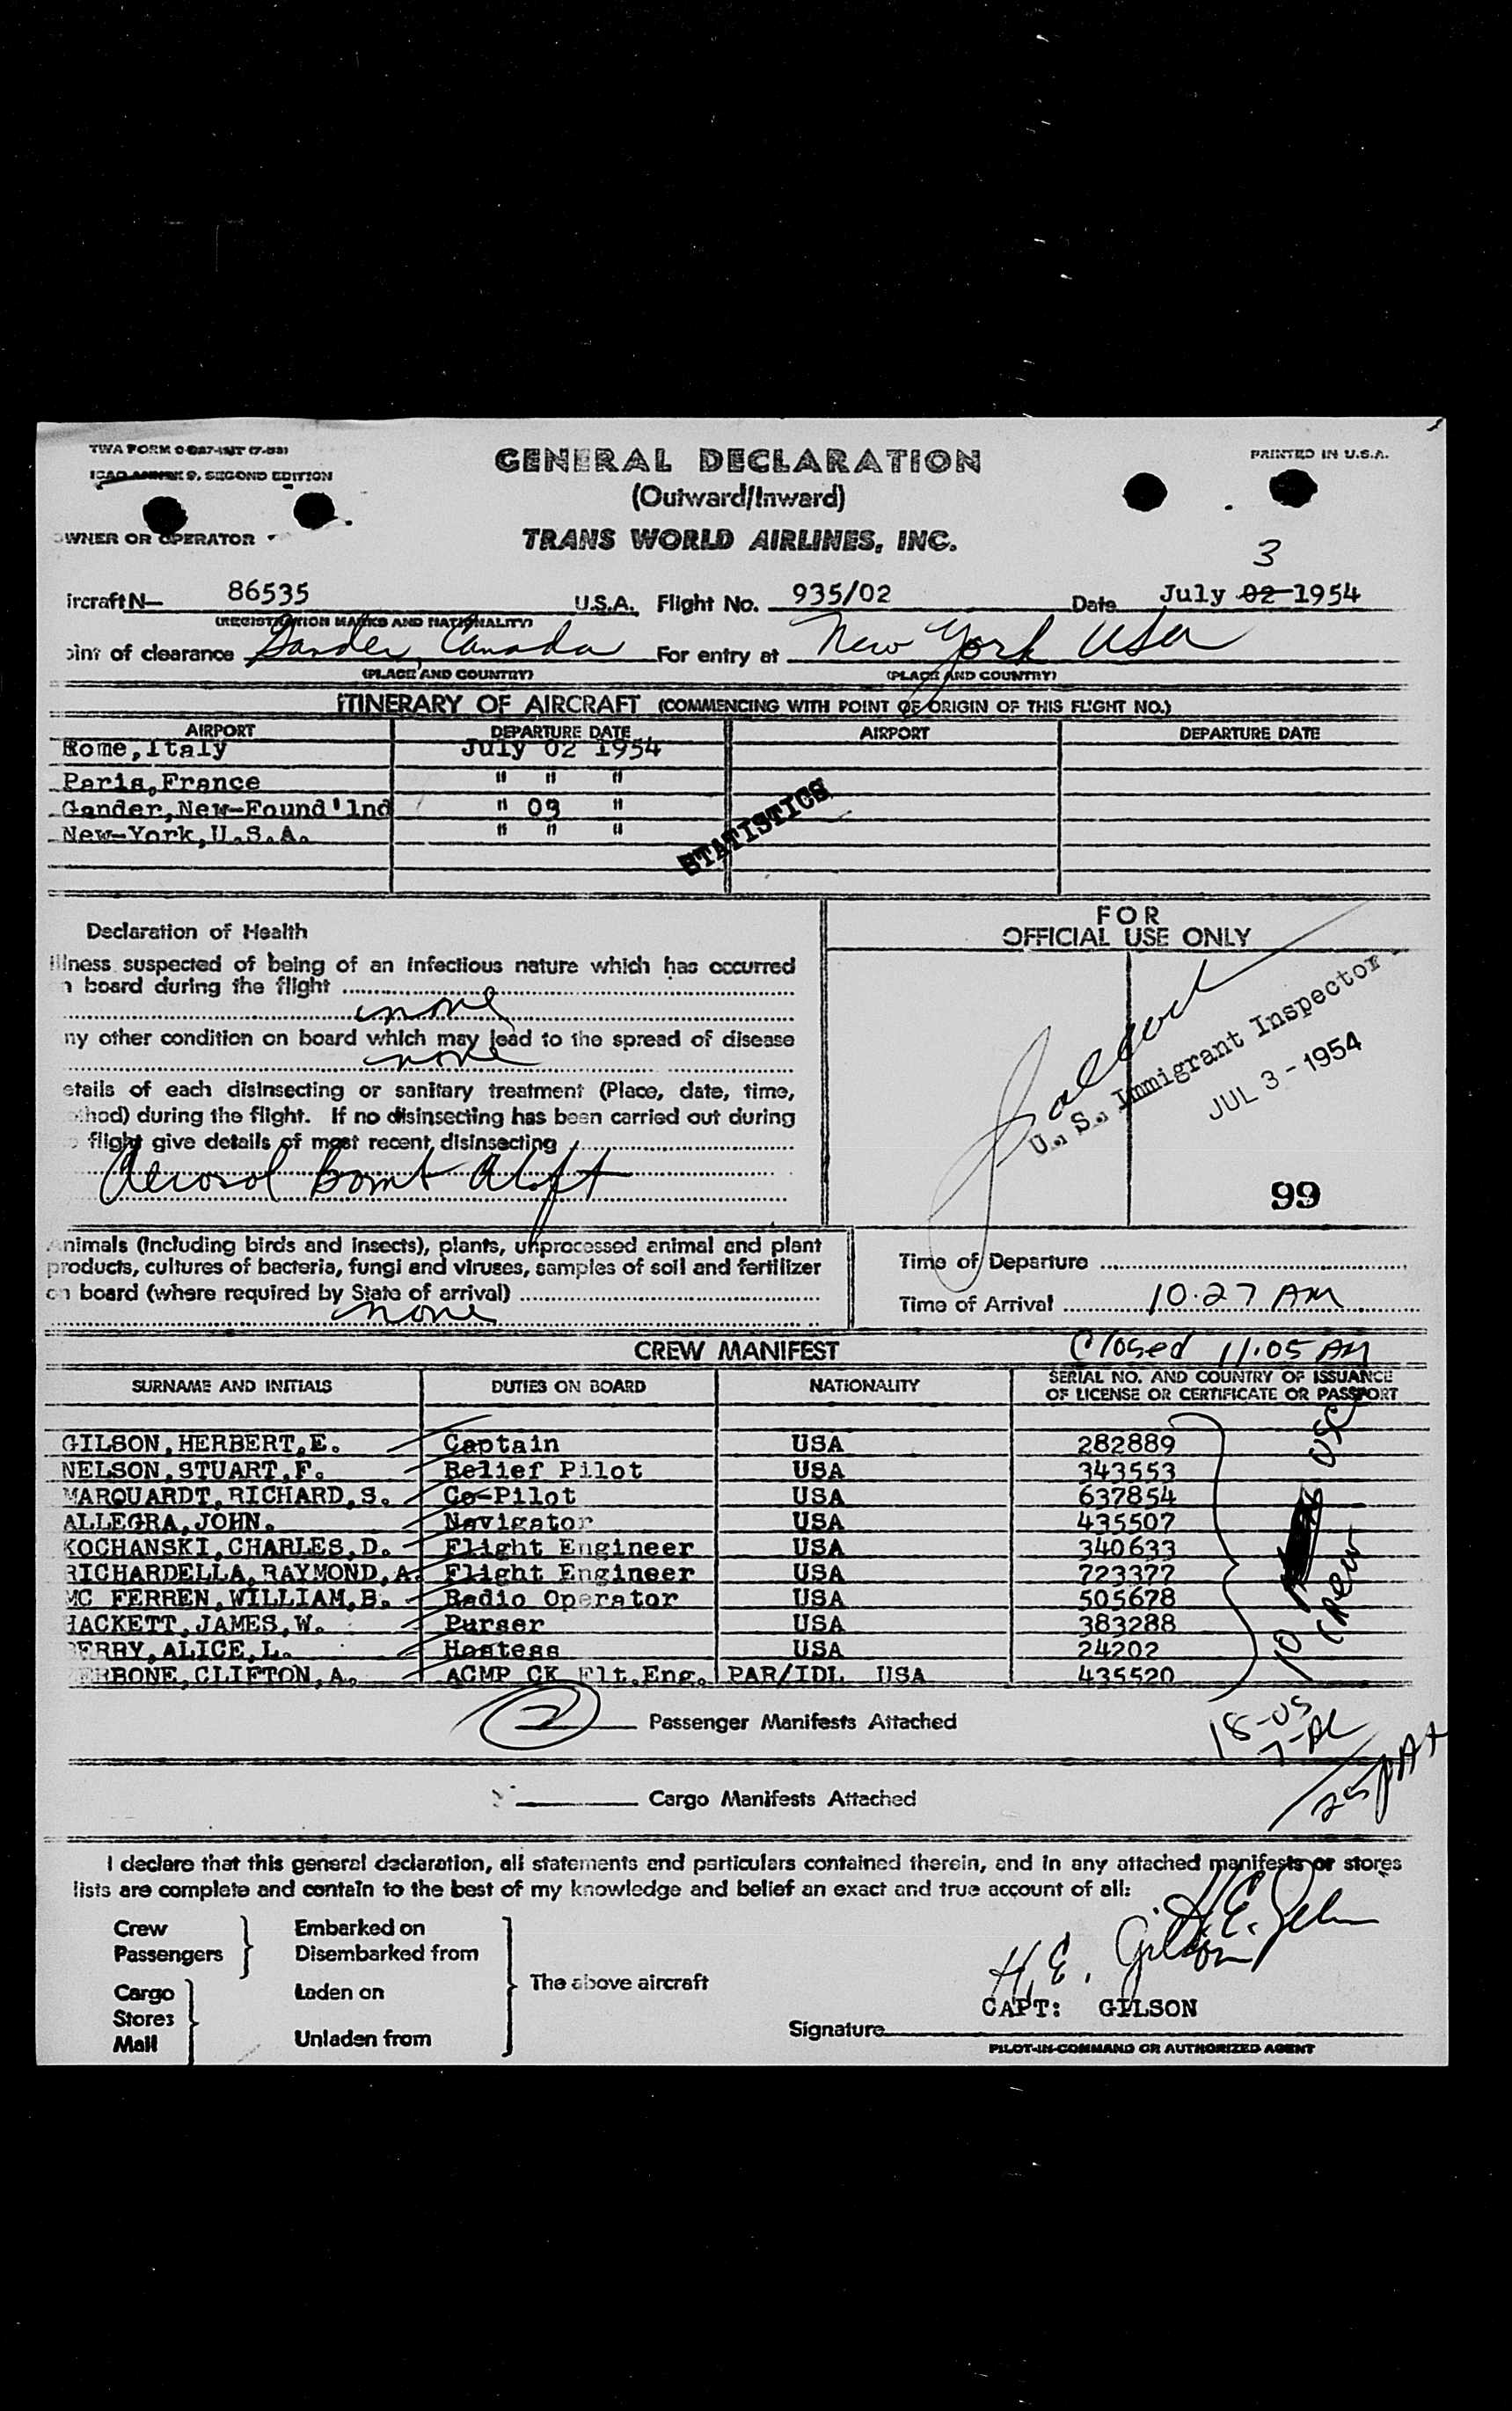 TWA FORM O-827-INT (7-53)
ICAO ANNEX 9, SECOND EDITION
PRINTED IN U.S.A.
GENERAL DECLARATION
(Outward/Inward)
OWNER OR OPERATOR
TRANS WORLD AIRLINES, INC.
3
ircraft N— 86535 U.S.A. Flight No. 935/02 Date July 02 1954
(REGISTRATION MARKS AND NATIONALITY)
oint of clearance Gander, Canada For entry at New York USA
(PLACE AND COUNTRY) (PLACE AND COUNTRY)
ITINERARY OF AIRCRAFT (COMMENCING WITH POINT OF ORIGIN OF THIS FLIGHT NO.)
AIRPORT DEPARTURE DATE AIRPORT DEPARTURE DATE
Rome, Italy July 02 1954
Paris, France " " "
Gander, New-Found'lnd " 03 "
New-York, U.S.A. " " "
STATISTICS
Declaration of Health
Illness suspected of being of an infectious nature which has occurred
n board during the flight
none
ny other condition on board which may lead to the spread of disease
none
etails of each disinsecting or sanitary treatment (Place, date, time,
thod) during the flight. If no disinsecting has been carried out during
flight give details of most recent disinsecting
Aerosol Bomb Aloft
FOR
OFFICIAL USE ONLY
U. S. Immigrant Inspector
JUL 3 - 1954
99
Animals (including birds and insects), plants, unprocessed animal and plant
products, cultures of bacteria, fungi and viruses, samples of soil and fertilizer
on board (where required by State of arrival)
none
Time of Departure
Time of Arrival 10.27 AM
CREW MANIFEST Closed 11.05 AM
SURNAME AND INITIALS DUTIES ON BOARD NATIONALITY SERIAL NO. AND COUNTRY OF ISSUANCE
OF LICENSE OR CERTIFICATE OR PASSPORT
GILSON, HERBERT, E. Captain USA 282889
NELSON, STUART, F. Relief Pilot USA 343553
MARQUARDT, RICHARD, S. Co-Pilot USA 637854
ALLEGRA, JOHN. Navigator USA 435507
KOCHANSKI, CHARLES, D. Flight Engineer USA 340633
RICHARDELLA, RAYMOND, A. Flight Engineer USA 723377
MC FERREN, WILLIAM, B. Radio Operator USA 505678
HACKETT, JAMES, W. Purser USA 383288
ERRY, ALICE, L. Hostess USA 24202
ERBONE, CLIFTON, A. ACMP CK Flt.Eng. PAR/IDL USA 435520
10 USC
Crew
2 Passenger Manifests Attached
18-US
7-AL
25 PAX
Cargo Manifests Attached
I declare that this general declaration, all statements and particulars contained therein, and in any attached manifests or stores
lists are complete and contain to the best of my knowledge and belief an exact and true account of all:
Crew Embarked on
Passengers Disembarked from
Cargo Laden on The above aircraft
Stores
Mail Unladen from
H.E. Gilson
H.E. Gilson
CAPT: GILSON
Signature
PILOT-IN-COMMAND OR AUTHORIZED AGENT